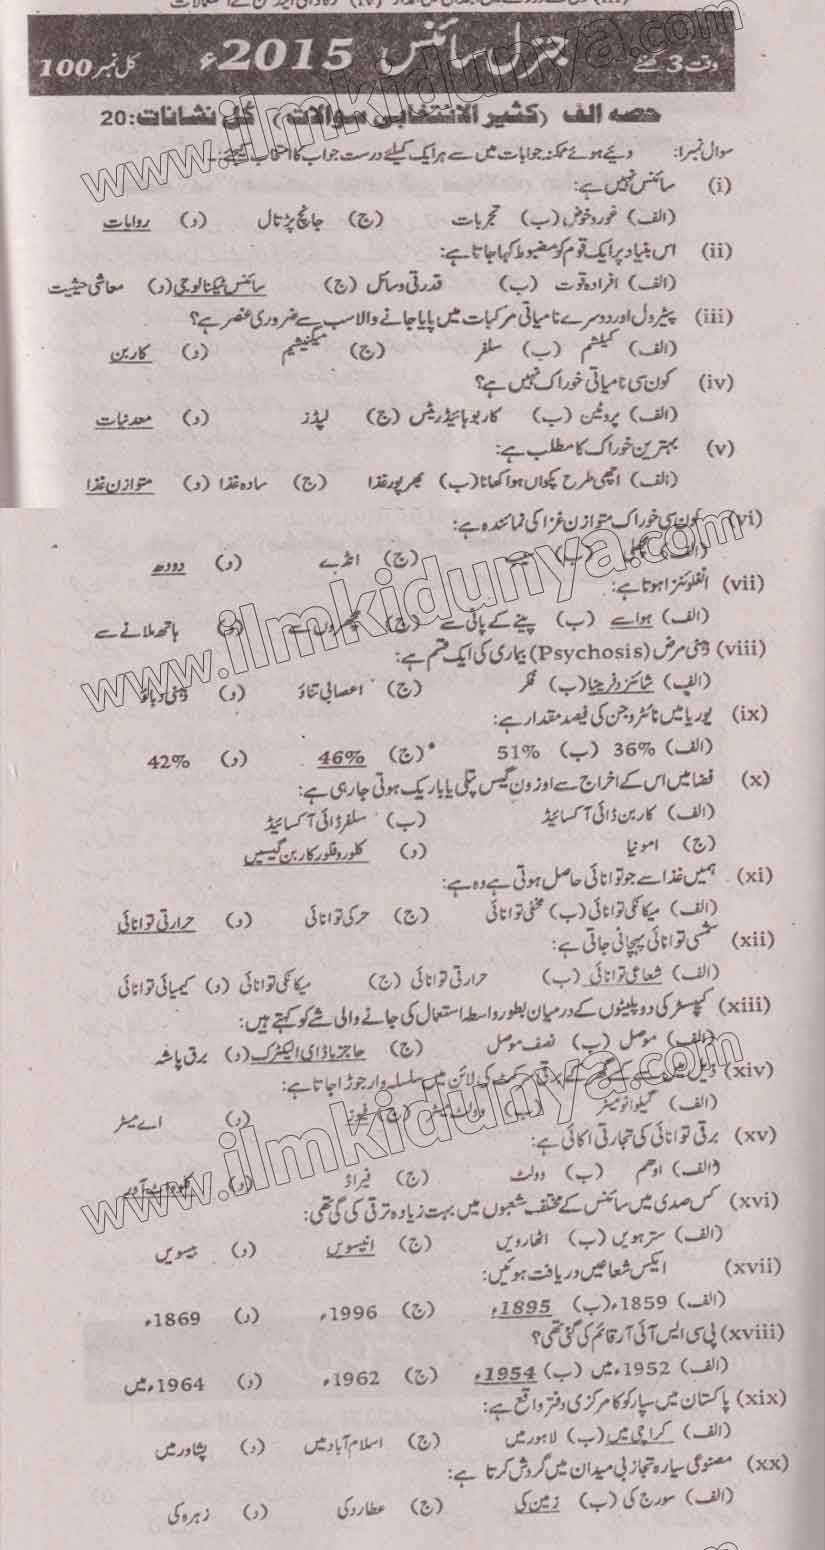 وقت 3 گھنٹے جنرل سائنس 2015ء کل نمبر 100
حصہ الف (کثیر الانتخابی سوالات) کل نشانات: 20
سوال نمبر1: دیئے ہوئے ممکنہ جوابات میں سے ہر ایک کیلئے درست جواب کا انتخاب کیجئے۔
(i) سائنس نہیں ہے:
(الف) غوروخوض (ب) تجربات (ج) جانچ پڑتال (د) روایات
(ii) اس بنیاد پر ایک قوم کو مضبوط کہا جاتا ہے:
(الف) افرادہ قوت (ب) قدرتی وسائل (ج) سائنس ٹیکنالوجی (د) معاشی حیثیت
(iii) پیٹرول اور دوسرے نامیاتی مرکبات میں پایا جانے والا سب سے ضروری عنصر ہے؟
(الف) کیلشم (ب) سلفر (ج) میکنیشیم (د) کاربن
(iv) کون سی نامیاتی خوراک نہیں ہے؟
(الف) پروٹین (ب) کاربوہائیڈریٹس (ج) لپڈز (د) معدنیات
(v) بہترین خوراک کا مطلب ہے:
(الف) اچھی طرح پکواں ہوا کھانا (ب) بھرپور غذا (ج) سادہ غذا (د) متوازن غذا
(vi) کون سی خوراک متوازن غزا کی نمائندہ ہے:
(الف) مچھلی (ب) (ج) انڈے (د) دودھ
(vii) انفلوئنزا ہوتا ہے:
(الف) ہوا سے (ب) پینے کے پانی سے (ج) مچھروں سے (د) ہاتھ ملانے سے
(viii) ذہنی مرض (Psychosis) بیماری کی ایک قسم ہے:
(الف) شائزوفرینیا (ب) فکر (ج) اعصابی تناؤ (د) ذہنی دباؤ
(ix) یوریا میں نائٹروجن کی فیصد مقدار ہے:
(الف) 36% (ب) 51% (ج) 46% (د) 42%
(x) فضا میں اس کے اخراج سے اوزون گیس پتلی یا باریک ہوتی جا رہی ہے:
(الف) کاربن ڈائی آکسائیڈ (ب) سلفر ڈائی آکسائیڈ
(ج) امونیا (د) کلوروفلورو کاربن گیسیں
(xi) ہمیں غذا سے جو توانائی حاصل ہوتی ہے وہ ہے:
(الف) میکانکی توانائی (ب) مخفی توانائی (ج) حرکی توانائی (د) حرارتی توانائی
(xii) شمسی توانائی پہچانی جاتی ہے:
(الف) شعاعی توانائی (ب) حرارتی توانائی (ج) میکانکی توانائی (د) کیمیائی توانائی
(xiii) کپیسٹر کی دو پلیٹوں کے درمیان بطور واسطہ استعمال کی جانے والی شے کو کہتے ہیں:
(الف) موصل (ب) نصف موصل (ج) حاجز یا ڈای الیکٹرک (د) برق پاشہ
(xiv) ذیل میں سے گھر کے برقی سرکٹ کی لائن میں سلسلہ وار جوڑا جاتا ہے:
(الف) گیلوانومیٹر (ب) وولٹ میٹر (ج) فیوز (د) اے میٹر
(xv) برقی توانائی کی تجارتی اکائی ہے:
(الف) اوھم (ب) وولٹ (ج) فیراڈ (د) کلوواٹ آور
(xvi) کس صدی میں سائنس کے مختلف شعبوں میں بہت زیادہ ترقی کی گئی تھی:
(الف) سترہویں (ب) اٹھارویں (ج) انیسویں (د) بیسویں
(xvii) ایکس شعاعیں دریافت ہوئیں:
(الف) 1859ء (ب) 1895ء (ج) 1996ء (د) 1869ء
(xviii) پی سی ایس آئی آر قائم کی گئی تھی؟
(الف) 1952ء میں (ب) 1954ء (ج) 1962ء (د) 1964ء میں
(xix) پاکستان میں سپارکو کا مرکزی دفتر واقع ہے:
(الف) کراچی میں (ب) لاہور میں (ج) اسلام آباد میں (د) پشاور میں
(xx) مصنوعی سیارہ تجازبی میدان میں گردش کرتا ہے:
(الف) سورج کی (ب) زمین کی (ج) عطارد کی (د) زہرہ کی
www.ilmkidunya.com
www.ilmkidunya.com
www.ilmkidunya.com